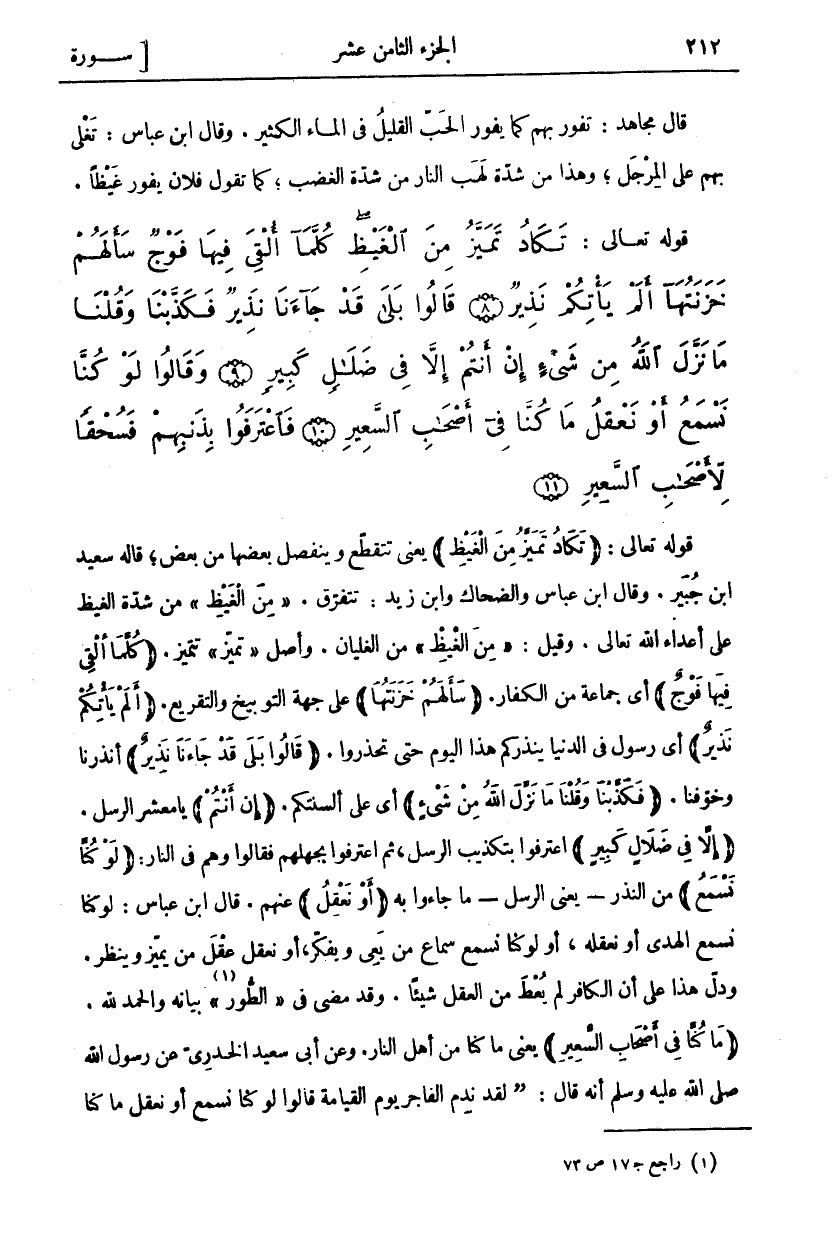 ٢١٢ الجزء الثامن عشر [ ســـورة
قال مجاهد : تفور بهم كما يفور الحَبّ القليلُ فى المـاء الكثير . وقال ابن عباس : تَغْلى
بهم على المِرْجَل ؛ وهذا من شدّة لَهَب النار من شدّة الغضب ؛ كما تقول فلان يفور غَيْظاً .
قوله تعـالى : تَـكَادُ تَمَيَّزُ مِنَ ٱلْغَيْظِۖ كُلَّمَآ أُلْقِىَ فِيهَا فَوْجٌ سَأَلَهُـمْ
خَزَنَتُهَآ أَلَمْ يَأْتِكُمْ نَذِيرٌ ٨ قَالُوا بَلَىٰ قَدْ جَآءَنَا نَذِيرٌ فَـكَذَّبْنَا وَقُلْنَـا
مَا نَزَّلَ ٱللَّهُ مِن شَىْءٍ إِنْ أَنتُمْ إِلَّا فِى ضَلَـٰلٍ كَبِيرٍ ٩ وَقَالُوا لَوْ كُنَّا
نَسْمَعُ أَوْ نَعْقِلُ مَا كُنَّا فِىٓ أَصْحَـٰبِ ٱلسَّعِيرِ ١٠ فَٱعْتَرَفُوا بِذَنبِهِـمْ فَسُحْقًا
لِّأَصْحَـٰبِ ٱلسَّعِيرِ ١١
قوله تعالى : ﴿ تَكَادُ تَمَيَّزُ مِنَ الْغَيْظِ ﴾ يعنى تتقطّع وينفصل بعضها من بعض ؛ قاله سعيد
ابن جُبَير . وقال ابن عباس والضحاك وابن زيد : تتفرّق . « مِنَ الْغَيْظِ » من شدّة الغيظ
على أعداء الله تعالى . وقيل : « مِنَ الْغَيْظِ » من الغليان . وأصل « تميّز » تتميّز . ﴿ كُلَّمَا أُلْقِىَ
فِيهَا فَوْجٌ ﴾ أى جماعة من الكفار. ﴿ سَأَلَهُمْ خَزَنَتُهَا ﴾ على جهة التوبيخ والتقريع. ﴿ أَلَمْ يَأْتِكُمْ
نَذِيرٌ ﴾ أى رسول فى الدنيا ينذركم هذا اليوم حتى تحذروا . ﴿ قَالُوا بَلَى قَدْ جَاءَنَا نَذِيرٌ ﴾ أنذرنا
وخوّفنا . ﴿ فَكَذَّبْنَا وَقُلْنَا مَا نَزَّلَ اللهُ مِنْ شَىْءٍ ﴾ أى على ألسنتكم. ﴿ إِنْ أَنْتُمْ ﴾ يامعشر الرسل .
﴿ إِلَّا فِى ضَلَالٍ كَبِيرٍ ﴾ اعترفوا بتكذيب الرسل ، ثم اعترفوا بجهلهم فقالوا وهم فى النار: ﴿ لَوْ كُنَّا
نَسْمَعُ ﴾ من النذر – يعنى الرسل – ما جاءوا به ﴿ أَوْ نَعْقِلُ ﴾ عنهم . قال ابن عباس : لو كنا
نسمع الهدى أو نعقله ، أو لو كنا نسمع سماع من يَعِى ويفكّر، أو نعقل عقْلَ من يميّز وينظر .
ودلّ هذا على أن الكافر لم يُعْطَ من العقل شيئًا . وقد مضى فى « الطُّور »(١) بيانه والحمد لله .
﴿ مَا كُنَّا فِى أَصْحَابِ السَّعِيرِ ﴾ يعنى ما كنا من أهل النار. وعن أبى سعيد الخدرىّ عن رسول الله
صلى الله عليه وسلم أنه قال : " لقد نَدِم الفاجر يوم القيامة قالوا لو كنا نسمع أو نعقل ما كنا
(١) راجع جـ ١٧ ص ٧٣